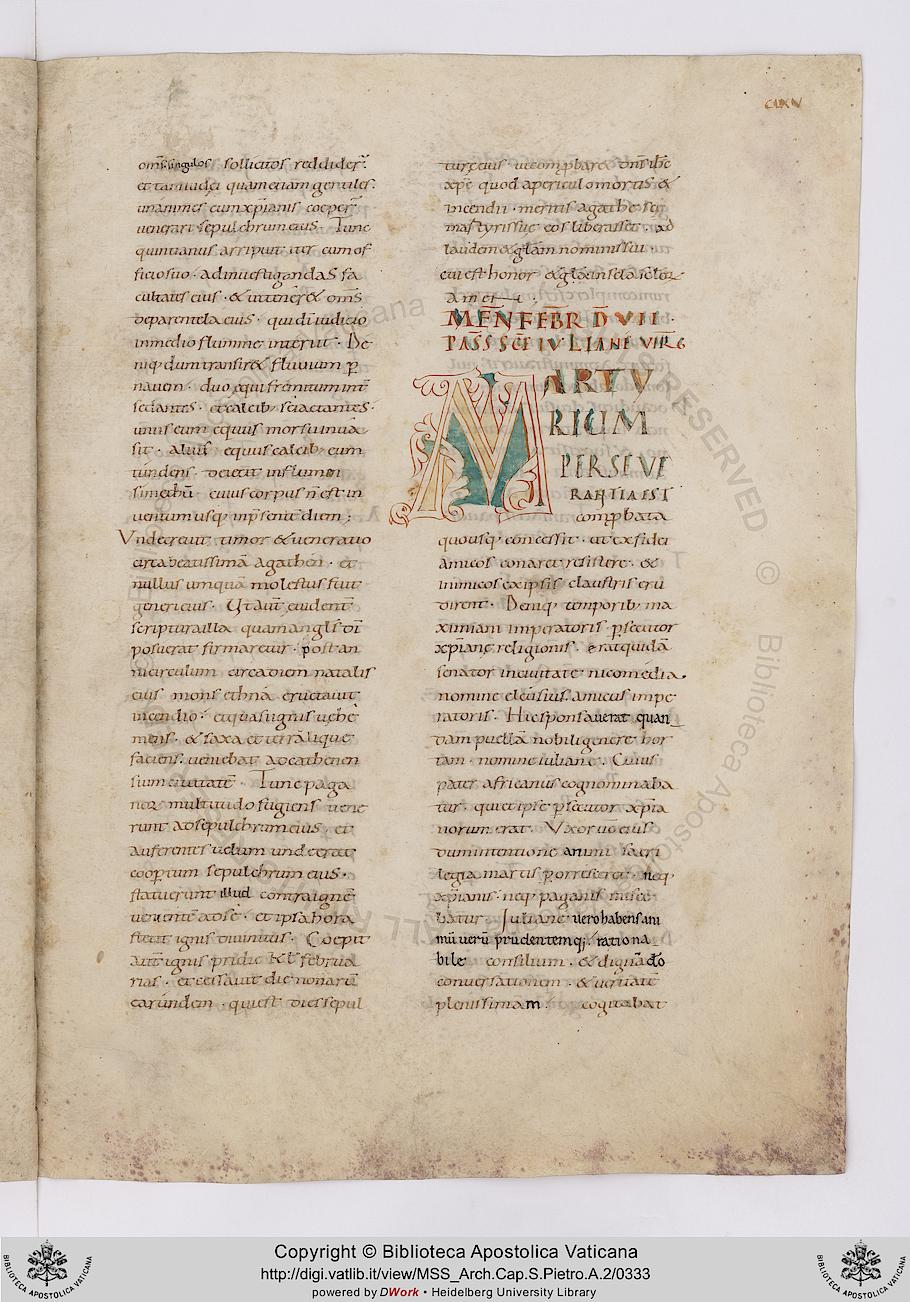 CLXV
om̄s singulos sollicitos reddider̄.
et tam iudei quam etiam gentiles.
unanimes cum xp̄ianis coeper̄.
uenerari sepulchrum eius. Tunc
quintianus arripuit iter cum of
ficio suo. ad inuestigandas fa
cultates eius. & ut teneret om̄s
de parentela eius. qui dī iudicio
in medio flumine interiit. De
niq; dum transir& fluuium ꝑ
nauem. duo equi fremitum int̄
se dantes. et calcib; se iactantes.
unus eum equus morsu inua
sit. alius equus calcib; eum
tundens. deiecit in flumen
simethū. cuius corpus n̄ est in
uentum usq; in p̄sentē diem;
Vnde creuit timor & ueneratio
circa beatissimā agathen. et
nullus umquā molestus fuit
generi eius. Ut aut̄ euident̄
scriptura illa quam angl̄s dn̄i
posuerat firmaretur. post an
ni circulum circa diem natalis
eius mons ethna eructauit
incendiū. et quasi ignis uehe
mens. & saxa et terrā lique
faciens. ueniebat ad cathenen
sium ciuitatē. Tunc paga
norū multitudo fugiens uene
runt ad sepulchrum eius. et
auferentes uelum unde erat
coopertum sepulchrum eius.
statuerunt illud contra ignē
uenientē ad se. et ipsa hora
stetit ignis diuinitus. Coepit
aut̄ ignis pridie kl̄ februa
rias. et cessauit die nonarū
earundem. qui est dies sepul
turę eius. ut comprobar& dn̄s ih̄c
xp̄c quod a periculo mortis &
incendii. meritis agathe sc̄ę
martyris suę eos liberasset. ad
laudem & glām nominis sui.
cui est honor & glā in sc̄la sc̄lor̄
amen.
MEN̄ FEBR̄ D̄ VII
PASS̄ SC̄E IULIANE VIRḠ
MARTY
RIUM
PERSEVE
RANTIA EST
comprobata
quousq; concessit. ut ex fidei
amicos conaret resistere. &
inimicos ex ipsis claustris eru
dirent. Deniq; temporib; ma
ximiani imperatoris p̄secutor
xp̄ianę religionis. erat quidā
senator in ciuitate nicomedia.
nomine eleusius. amicus impe
ratoris. Hic sponsauerat quan
dam puellā nobili genere hor
tam. nomine iuliane. Cuius
pater africanus cognominaba
tur. qui et ipse p̄secutor xp̄ia
norum erat. Uxor uō eius
dum intentione animi sacri
legia martis ꝑorresceret. neq;
xp̄ianis. neq; paganis misce
batur. Juliane uero habens ani
mū uerū prudentemq; rationa
bile consilium. & dignā dō
conuersationem. & uirtutē
plenissimam cogitabat
Copyright © Biblioteca Apostolica Vaticana
http://digi.vatlib.it/view/MSS_Arch.Cap.S.Pietro.A.2/0333
powered by DWork • Heidelberg University Library